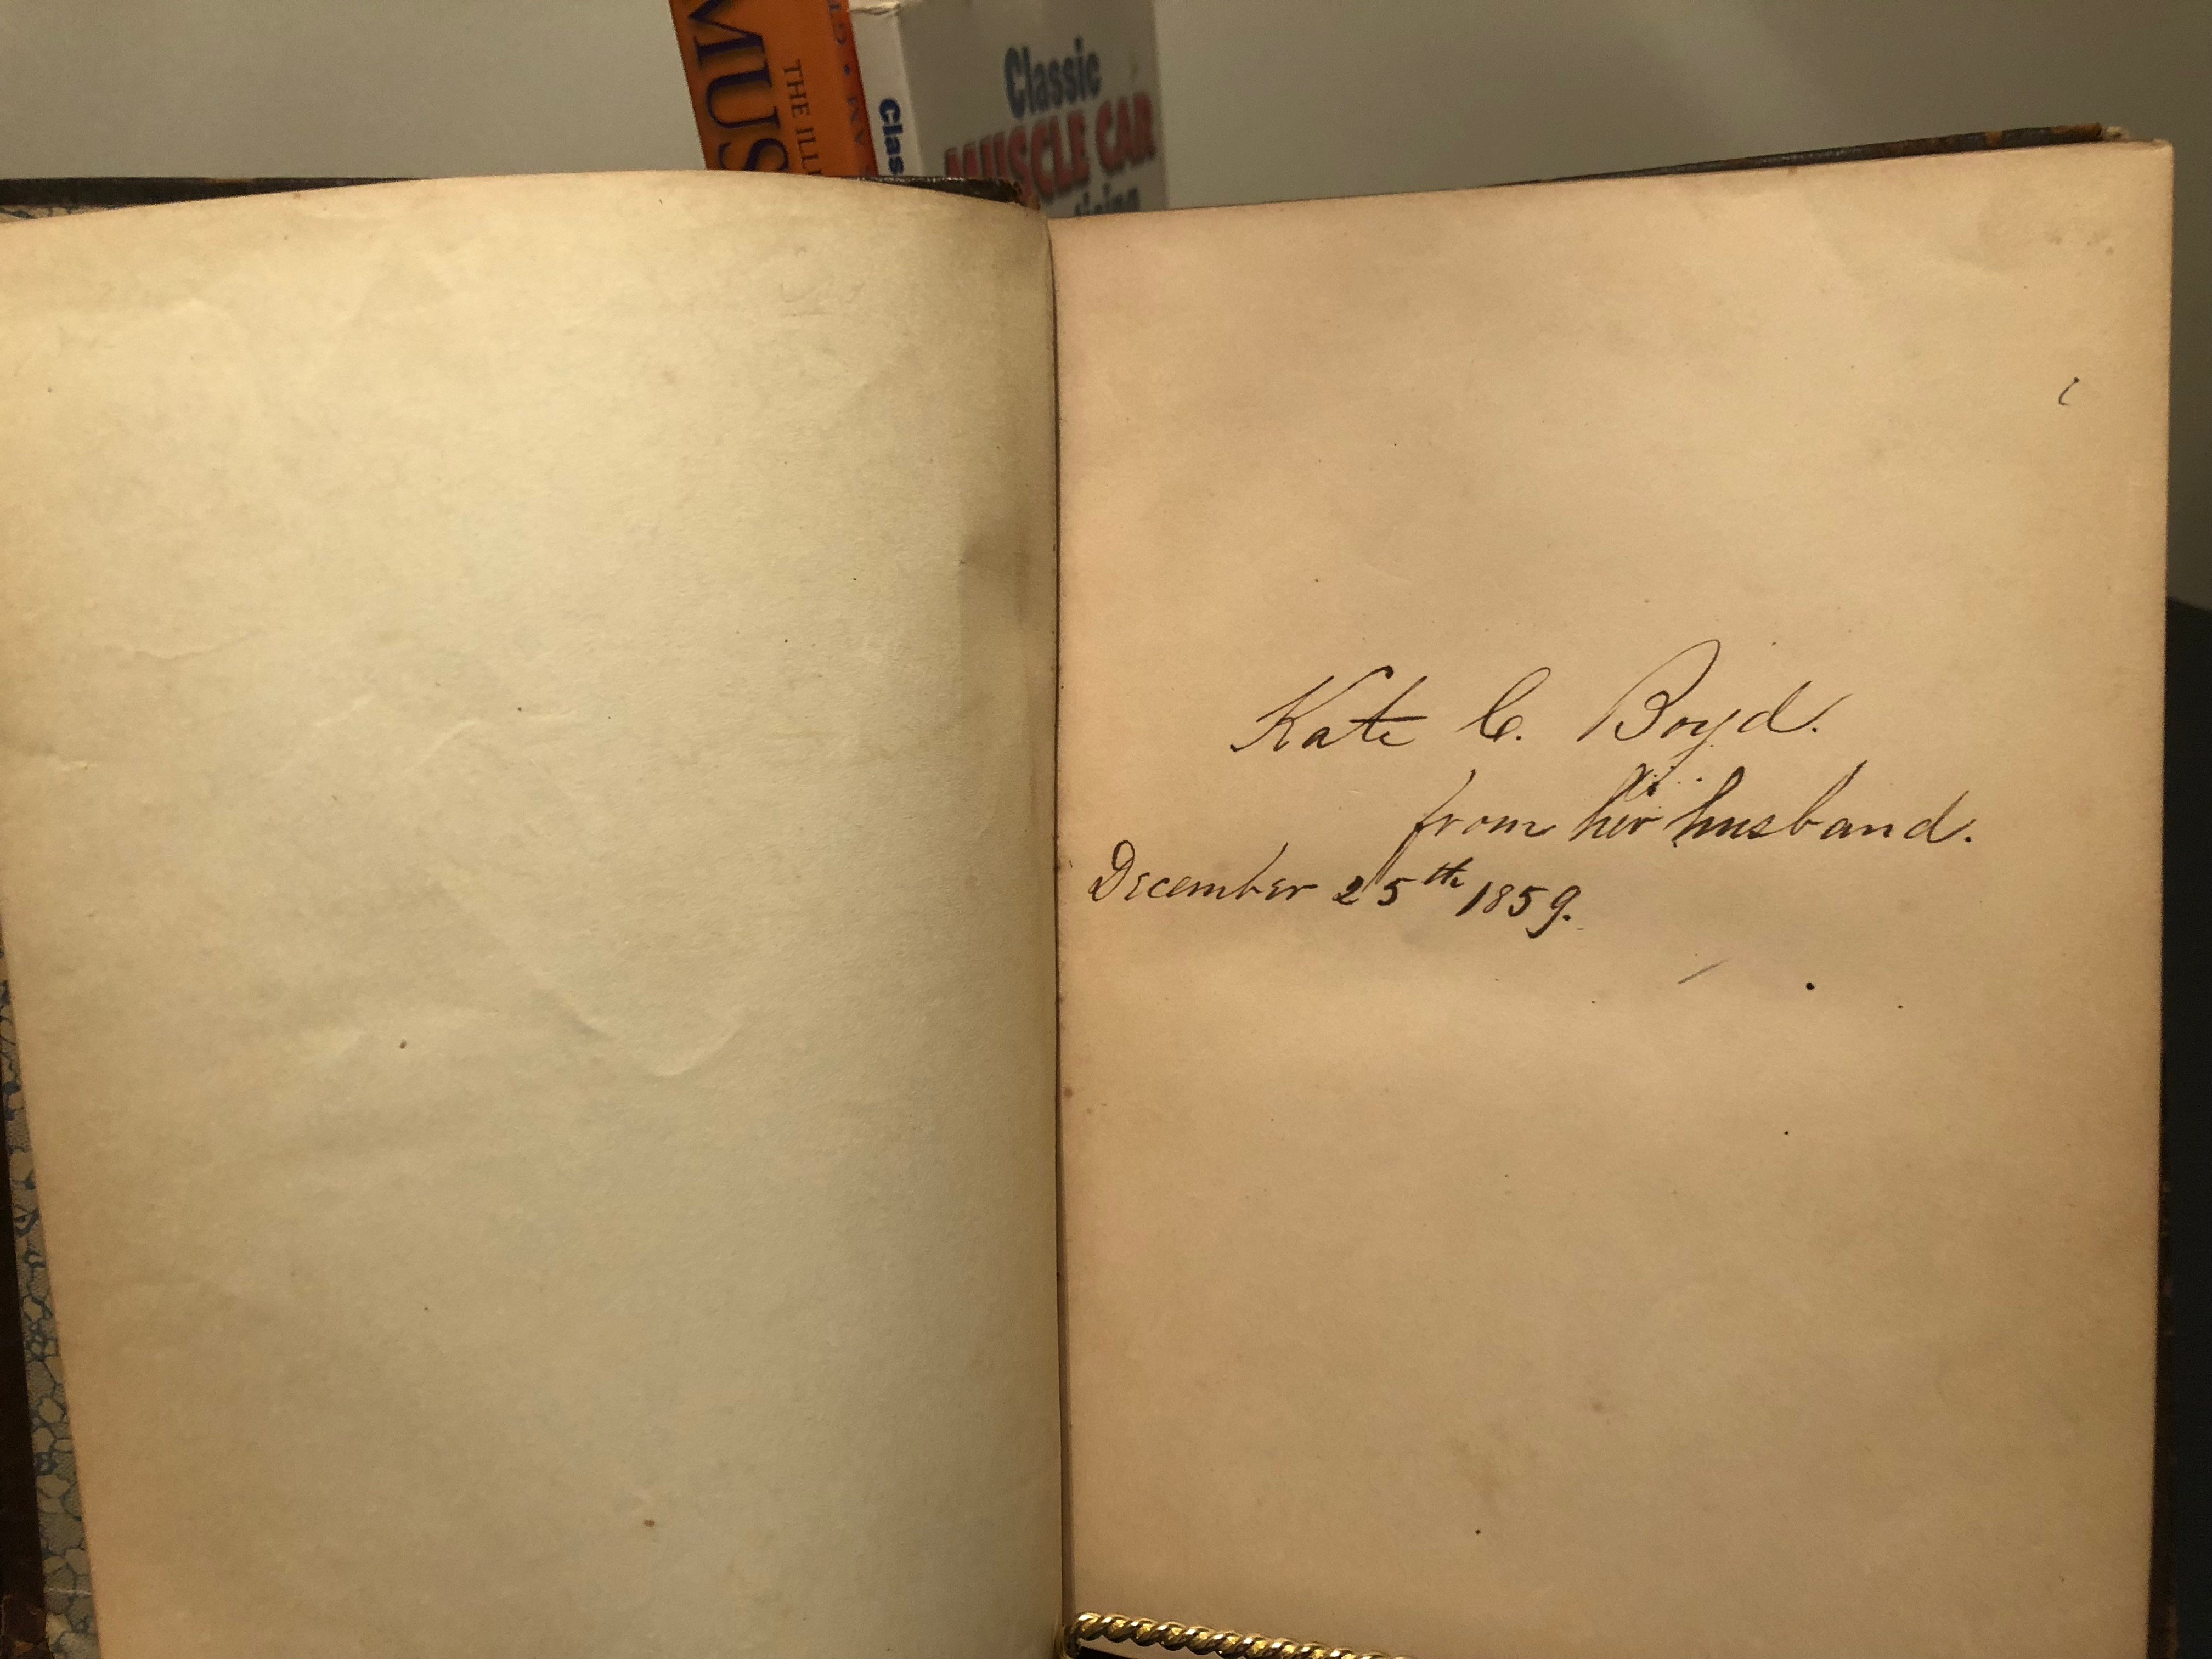 MUS
THE ILL
Clas
Classic
MUSCLE CAR
Kate C. Boyd.
from her husband.
December 25th 1859.